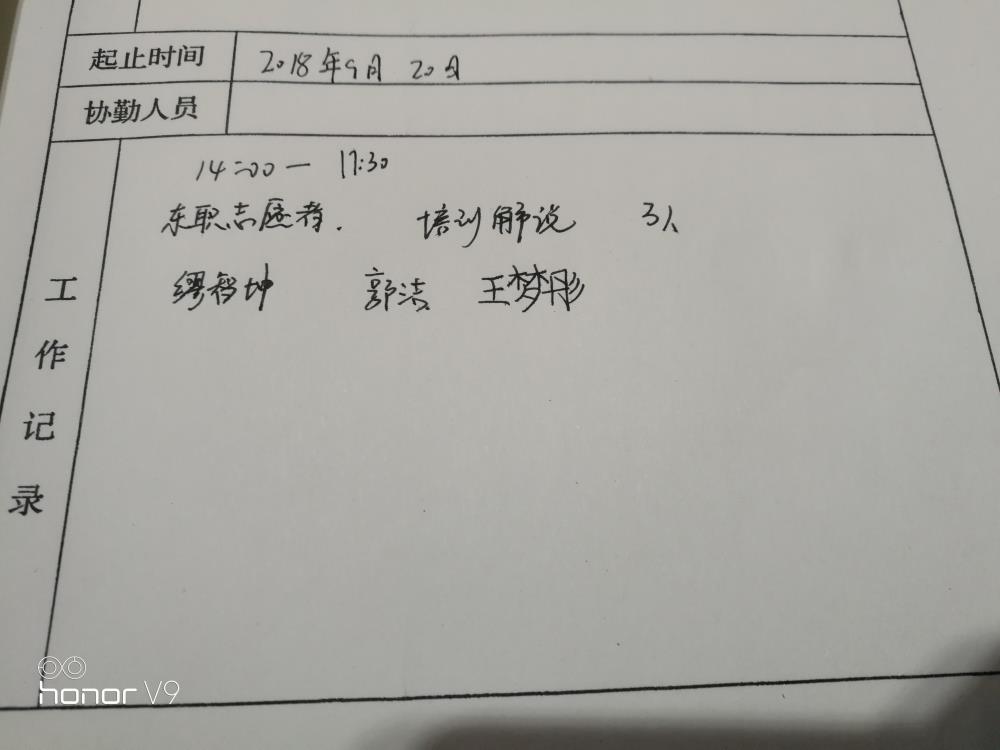 起止时间 2018年9月20日
协勤人员
14:00一17:30
东职志愿者. 培训解说 3人
缪智坤 郭洁 王梦彤
工作记录
honor V9